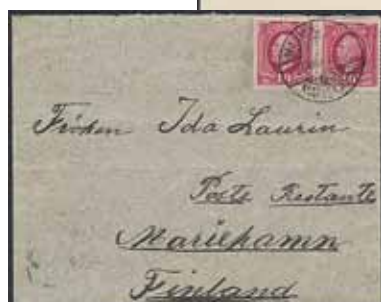 Fröken Ida Laurin
Poste Restante
Mariehamn
Finland